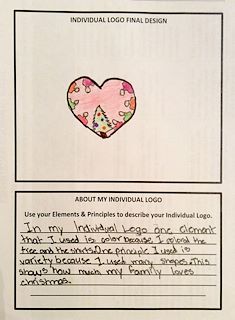 INDIVIDUAL LOGO FINAL DESIGN
ABOUT MY INDIVIDUAL LOGO
Use your Elements & Principles to describe your Individual Logo.
In my Individual Logo one element
that I used is color because I colord the
tree and the shirts. One principle I used is
variety because I used many shapes. This
shows how much my family loves
christmas.